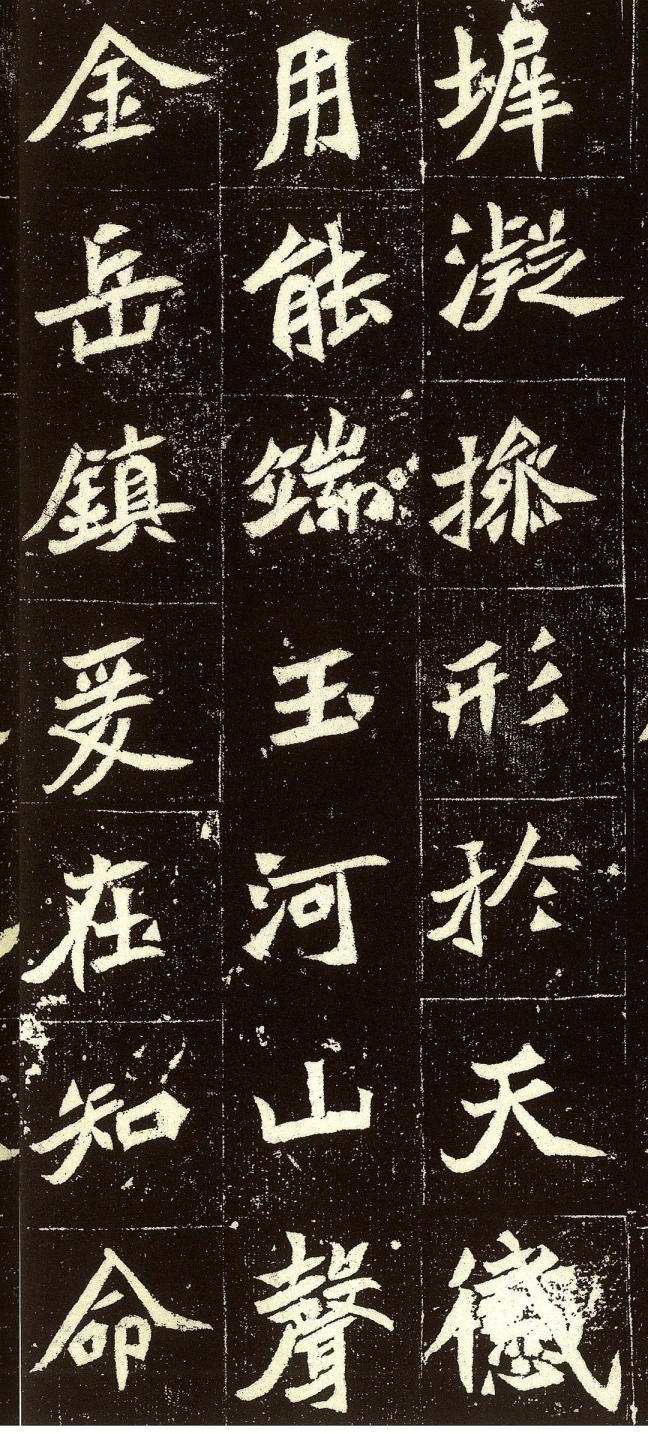 墀凝操形於天感
用能端玉河山聲
金岳鎮爰在知命